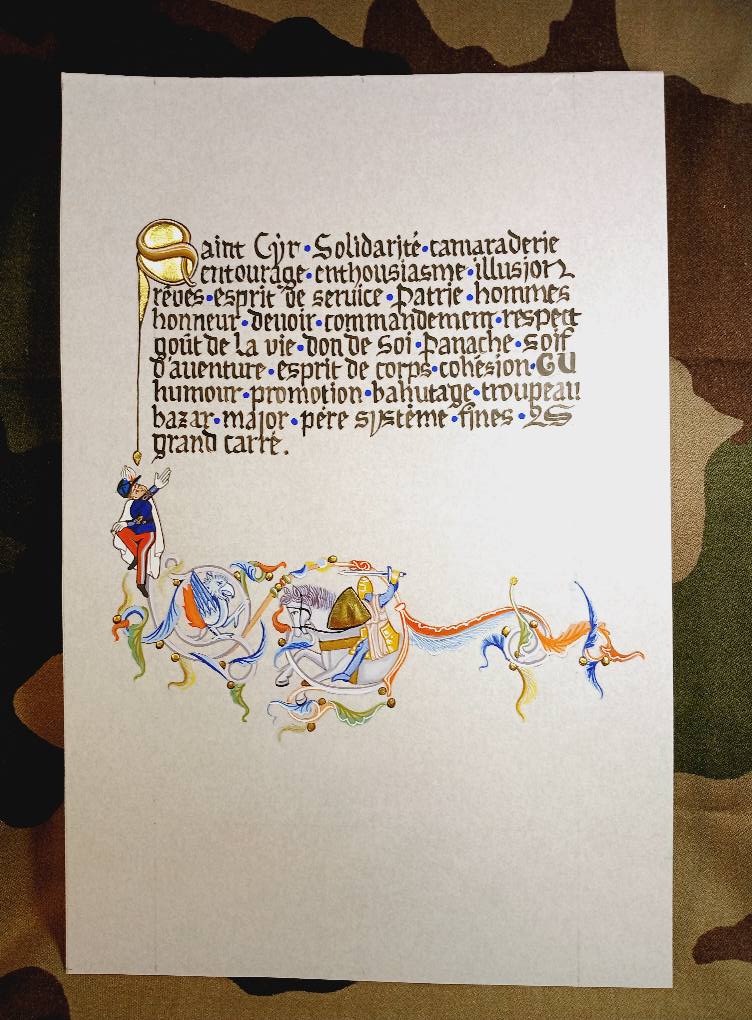 Saint Cÿr • Solidarité • camaraderie
entourage • enthousiasme • illusion
rêves • esprit de service • Patrie • hommes
honneur • devoir • commandement • respect
goût de la vie • don de soi • Panache • soif
d'aventure • esprit de corps • cohésion • GU
humour • promotion • bahutage • troupeau
bazar • major • père système • fines • 2S
grand carré.